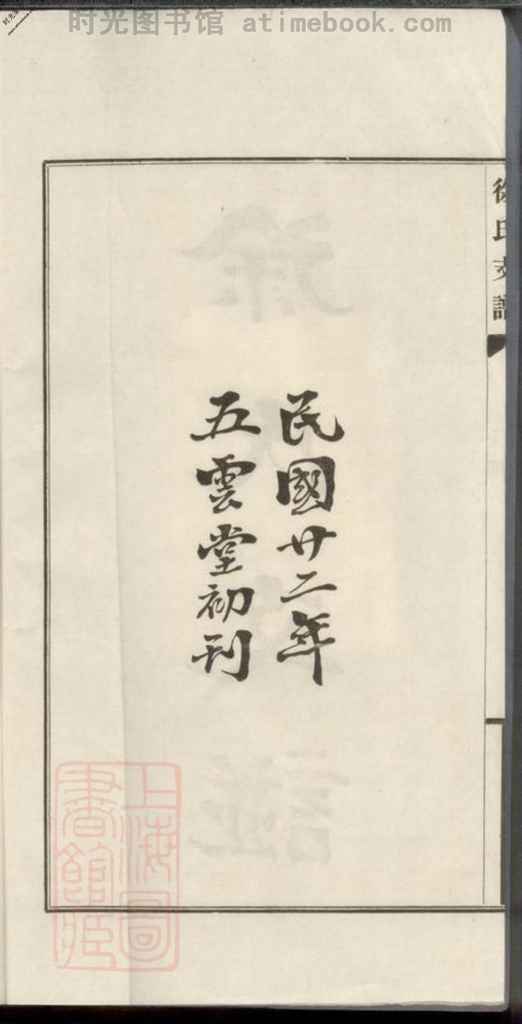 时光图书馆 atimebook.com
徐氏支譜
民國廿二年
五雲堂初刊
上海圖
書館藏